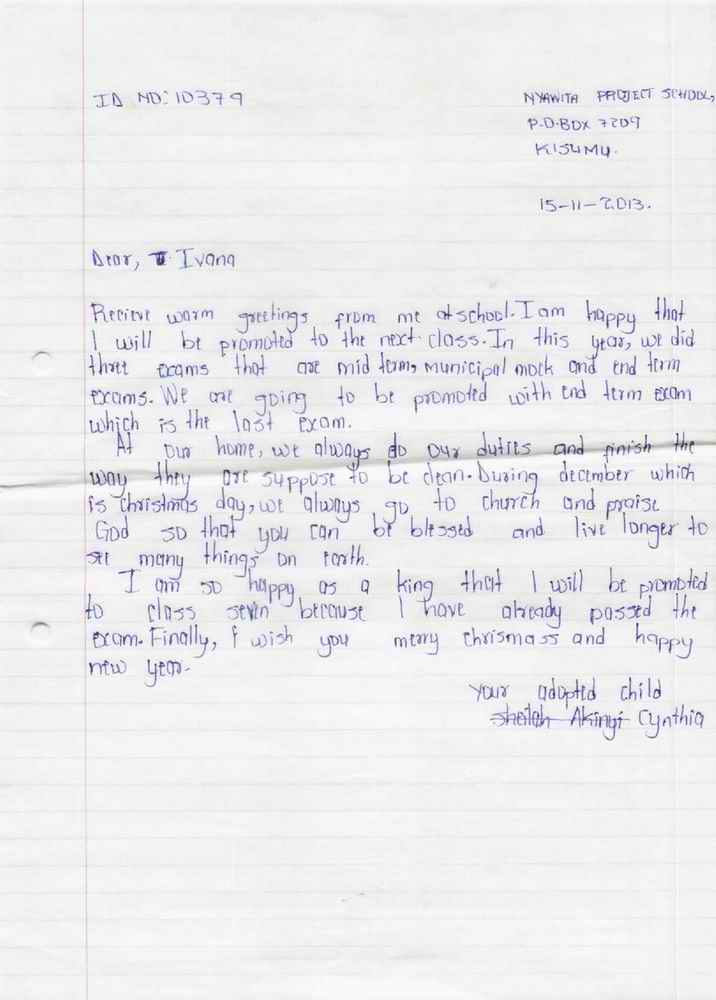 ID NO: 10379
NYAWITA PROJECT SCHOOL,
P.O.BOX 7209
KISUMU.
15-11-2013.
Dear, Ivana
Recieve warm greetings from me at school. I am happy that
I will be promoted to the next class. In this year, we did
three exams that are mid term, municipal mock and end term
exams. We are going to be promoted with end term exam
which is the last exam.
At our home, we always do our duties and finish the
way they are suppose to be clean. During december which
is christmas day, we always go to church and praise
God so that you can be blessed and live longer to
see many things on earth.
I am so happy as a king that I will be promoted
to class seven because I have already passed the
exam. Finally, I wish you merry chrismass and happy
new year.
Your adopted child
Sheilah Akinyi Cynthia